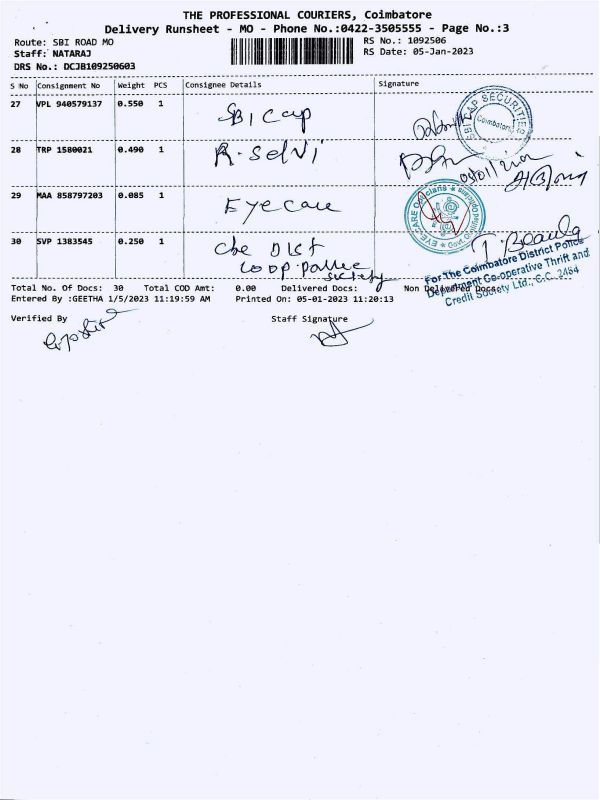 THE PROFESSIONAL COURIERS, Coimbatore
Delivery Runsheet - MO - Phone No.:0422-3505555 - Page No.:3
Route: SBI ROAD MO
Staff: NATARAJ
DRS No.: DCJB109250603
RS No.: 1092506
RS Date: 05-Jan-2023
S No Consignment No Weight PCS Consignee Details Signature
27 VPL 940579137 0.550 1 SBI Cap
SBI CAP SECURITIES
Coimbatore
28 TRP 1580021 0.490 1 R. Selvi
29 MAA 858797203 0.085 1 Eye care
EYE-CARE Opticians
30 SVP 1383545 0.250 1 Cbe Dist
coop. police
society
For The Coimbatore District Police
Department Co-operative Thrift and
Credit Society Ltd., C.C. 2464
Total No. Of Docs: 30 Total COD Amt: 0.00 Delivered Docs: 0 Non Delivered Docs:
Entered By :GEETHA 1/5/2023 11:19:59 AM Printed On: 05-01-2023 11:20:13
Verified By Staff Signature